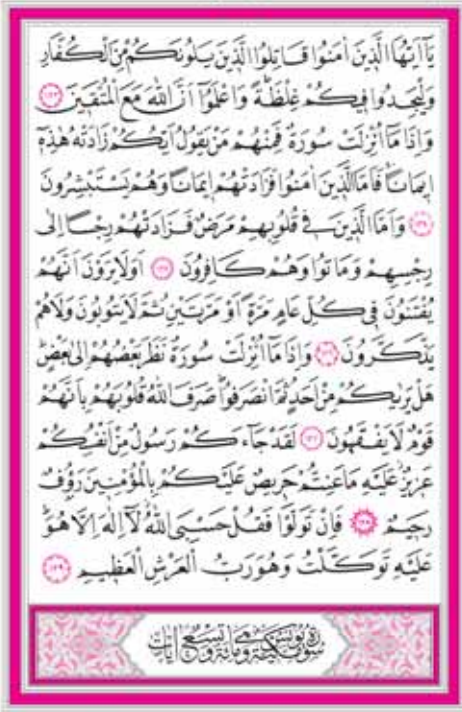 يَٓا اَيُّهَا الَّذ۪ينَ اٰمَنُوا قَاتِلُوا الَّذ۪ينَ يَلُونَكُمْ مِنَ الْكُفَّارِ
وَلْيَجِدُوا ف۪يكُمْ غِلْظَةًۜ وَاعْلَمُٓوا اَنَّ اللّٰهَ مَعَ الْمُتَّق۪ينَ ﴿١٢٣﴾
وَاِذَا مَٓا اُنْزِلَتْ سُورَةٌ فَمِنْهُمْ مَنْ يَقُولُ اَيُّكُمْ زَادَتْهُ هٰذِه۪ٓ
ا۪يمَانًاۚ فَاَمَّا الَّذ۪ينَ اٰمَنُوا فَزَادَتْهُمْ ا۪يمَانًا وَهُمْ يَسْتَبْشِرُونَ
﴿١٢٤﴾ وَاَمَّا الَّذ۪ينَ ف۪ي قُلُوبِهِمْ مَرَضٌ فَزَادَتْهُمْ رِجْسًا اِلٰى
رِجْسِهِمْ وَمَاتُوا وَهُمْ كَافِرُونَ ﴿١٢٥﴾ اَوَلَا يَرَوْنَ اَنَّهُمْ
يُفْتَنُونَ ف۪ي كُلِّ عَامٍ مَرَّةً اَوْ مَرَّتَيْنِ ثُمَّ لَا يَتُوبُونَ وَلَا هُمْ
يَذَّكَّرُونَ ﴿١٢٦﴾ وَاِذَا مَٓا اُنْزِلَتْ سُورَةٌ نَظَرَ بَعْضُهُمْ اِلٰى بَعْضٍۜ
هَلْ يَرٰيكُمْ مِنْ اَحَدٍ ثُمَّ انْصَرَفُواۜ صَرَفَ اللّٰهُ قُلُوبَهُمْ بِاَنَّهُمْ
قَوْمٌ لَا يَفْقَهُونَ ﴿١٢٧﴾ لَقَدْ جَٓاءَكُمْ رَسُولٌ مِنْ اَنْفُسِكُمْ
عَز۪يزٌ عَلَيْهِ مَا عَنِتُّمْ حَر۪يصٌ عَلَيْكُمْ بِالْمُؤْمِن۪ينَ رَؤُ۫فٌ
رَح۪يمٌ ﴿١٢٨﴾ فَاِنْ تَوَلَّوْا فَقُلْ حَسْبِيَ اللّٰهُۘ لَٓا اِلٰهَ اِلَّا هُوَۜ
عَلَيْهِ تَوَكَّلْتُ وَهُوَ رَبُّ الْعَرْشِ الْعَظ۪يمِ ﴿١٢٩﴾
سُورَةُ يُونُسَ مَكِّيَّةٌ وَهِيَ مِائَةٌ وَتِسْعُ اٰيَاتٍ